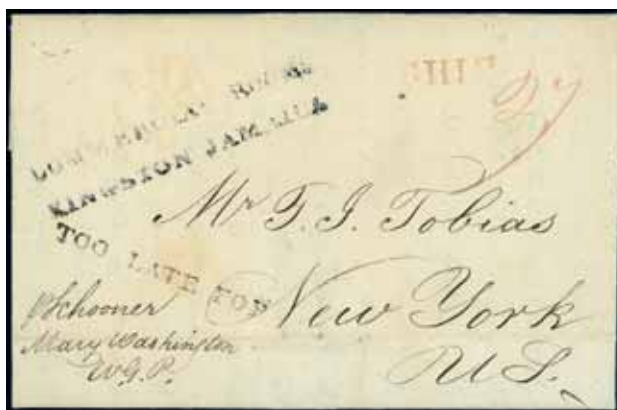 SHIP
27
COMMERCIAL ROOMS
KINGSTON JAMAICA
TOO LATE FOR
Mr T. J. Tobias
New York
U S.
p Schooner
Mary Washington
W.G.P.